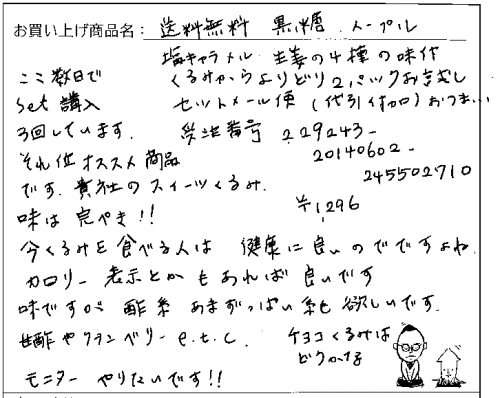 お買い上げ商品名：送料無料 黒糖、メープル
塩キャラメル 生姜の4種の味付
くるみからよりどり2パックお試し
セットメール便 (代引付加口) おつま…
受注番号 229243-
20140602-
245502710
¥1,296
ここ数日で
set 購入
3回しています。
それ位オススメ商品
です。貴社のスイーツくるみ、
味は完ぺき!!
今くるみを食べる人は 健康に良いのでですよね
カロリー 表示とかもあれば良いです
味ですが 酢系 あまずっぱい系も欲しいです。
甘酢やクランベリー e.t.c.
チョコくるみは
どうかな
モニター やりたいです!!